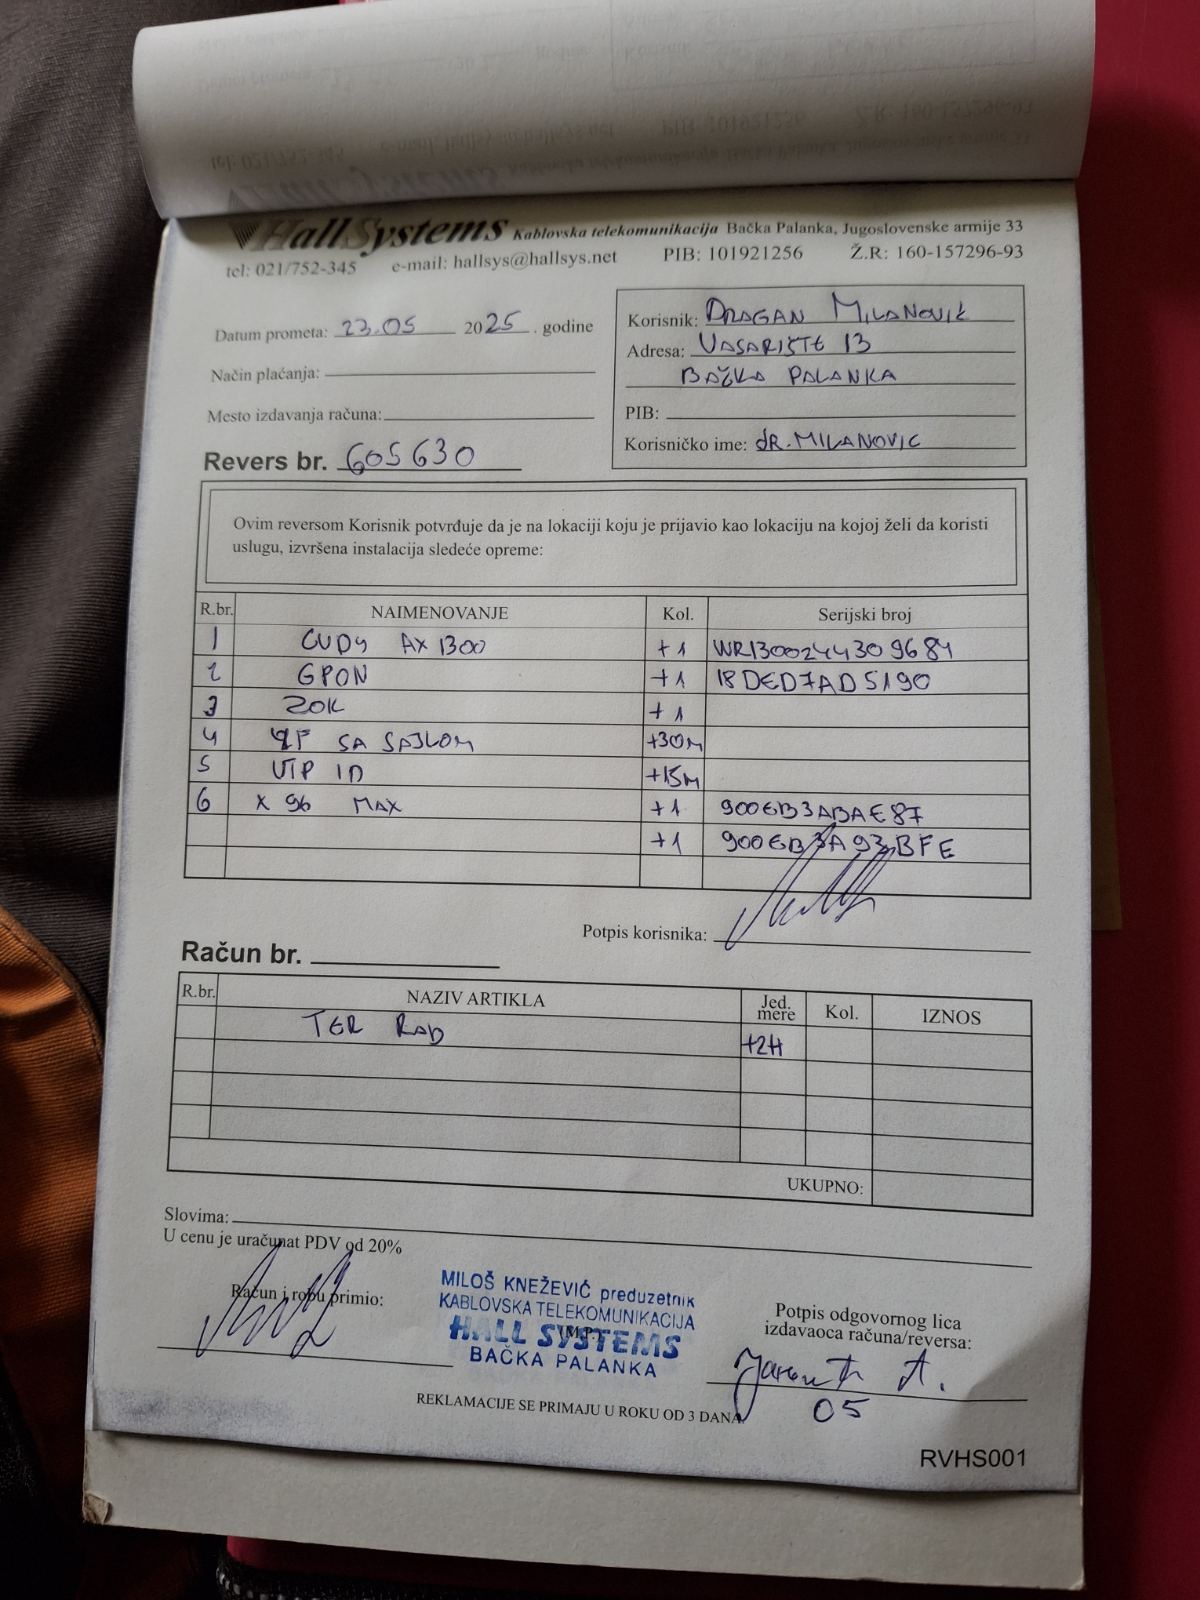 HallSystems Kablovska telekomunikacija Bačka Palanka, Jugoslovenske armije 33
tel: 021/752-345 e-mail: hallsys@hallsys.net PIB: 101921256 Ž.R: 160-157296-93
Datum prometa: 23.05 2025. godine
Način plaćanja:
Mesto izdavanja računa:
Revers br. 605630
Korisnik: DRAGAN MILANOVIĆ
Adresa: VASARIŠTE 13
BAČKA PALANKA
PIB:
Korisničko ime: dR.MILANOVIC
Ovim reversom Korisnik potvrđuje da je na lokaciji koju je prijavio kao lokaciju na kojoj želi da koristi
uslugu, izvršena instalacija sledeće opreme:
R.br. NAIMENOVANJE Kol. Serijski broj
1 CUDY AX 1300 +1 WR1300244309684
2 GPON +1 18DED7AD5190
3 ZOK +1
4 SA SAJLOM +30M
5 UTP +15M
6 X 96 MAX +1 900EB3ABAE87
+1 900EB3A93BFE
Potpis korisnika:
Račun br.
R.br. NAZIV ARTIKLA Jed. mere Kol. IZNOS
TER RAD +2H
UKUPNO:
Slovima:
U cenu je uračunat PDV od 20%
Račun i robu primio:
(M.P.)
MILOŠ KNEŽEVIĆ preduzetnik
KABLOVSKA TELEKOMUNIKACIJA
HALL SYSTEMS
BAČKA PALANKA
Potpis odgovornog lica
izdavaoca računa/reversa:
05
REKLAMACIJE SE PRIMAJU U ROKU OD 3 DANA
RVHS001